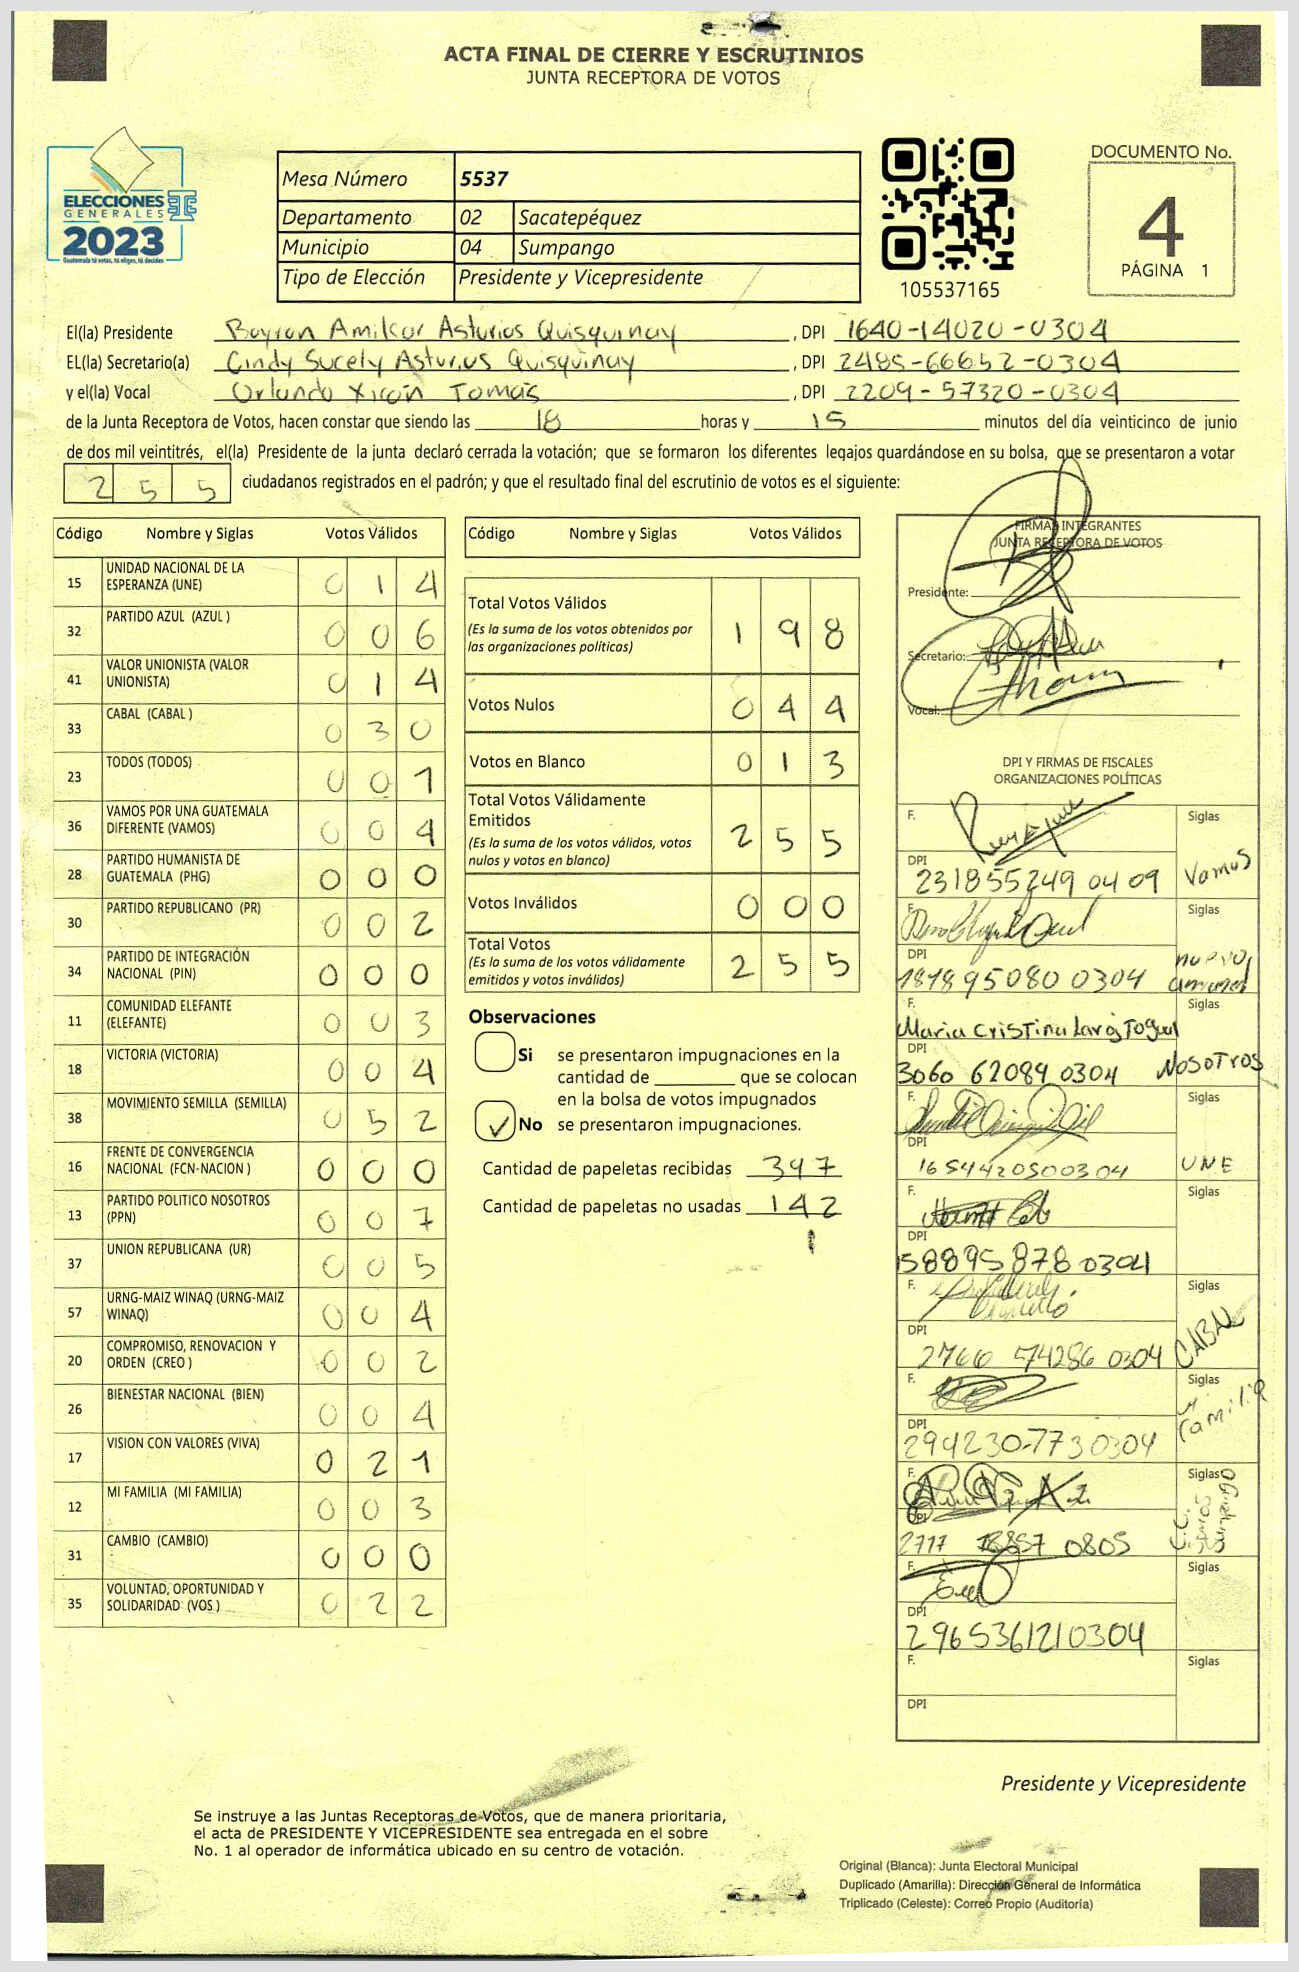 ACTA FINAL DE CIERRE Y ESCRUTINIOS
JUNTA RECEPTORA DE VOTOS
ELECCIONES
GENERALES
2023
Guatemala tú votas, tú eliges, tú decides
Mesa Número 5537
Departamento 02 Sacatepéquez
Municipio 04 Sumpango
Tipo de Elección Presidente y Vicepresidente
105537165
DOCUMENTO No.
4
PÁGINA 1
El(la) Presidente Bayron Amilcar Asturias Quisquinay , DPI 1640-14020-0304
EL(la) Secretario(a) Cindy Sucely Asturias Quisquinay , DPI 2485-66652-0304
y el(la) Vocal Orlando Xicón Tomás , DPI 2209-57320-0304
de la Junta Receptora de Votos, hacen constar que siendo las 18 horas y 15 minutos del día veinticinco de junio
de dos mil veintitrés, el(la) Presidente de la junta declaró cerrada la votación; que se formaron los diferentes legajos quardándose en su bolsa, que se presentaron a votar
255 ciudadanos registrados en el padrón; y que el resultado final del escrutinio de votos es el siguiente:
Código Nombre y Siglas Votos Válidos
15 UNIDAD NACIONAL DE LA ESPERANZA (UNE) 0 1 4
32 PARTIDO AZUL (AZUL ) 0 0 6
41 VALOR UNIONISTA (VALOR UNIONISTA) 0 1 4
33 CABAL (CABAL ) 0 3 0
23 TODOS (TODOS) 0 0 1
36 VAMOS POR UNA GUATEMALA DIFERENTE (VAMOS) 0 0 4
28 PARTIDO HUMANISTA DE GUATEMALA (PHG) 0 0 0
30 PARTIDO REPUBLICANO (PR) 0 0 2
34 PARTIDO DE INTEGRACIÓN NACIONAL (PIN) 0 0 0
11 COMUNIDAD ELEFANTE (ELEFANTE) 0 0 3
18 VICTORIA (VICTORIA) 0 0 4
38 MOVIMIENTO SEMILLA (SEMILLA) 0 5 2
16 FRENTE DE CONVERGENCIA NACIONAL (FCN-NACION ) 0 0 0
13 PARTIDO POLITICO NOSOTROS (PPN) 0 0 7
37 UNION REPUBLICANA (UR) 0 0 5
57 URNG-MAIZ WINAQ (URNG-MAIZ WINAQ) 0 0 4
20 COMPROMISO, RENOVACION Y ORDEN (CREO ) 0 0 2
26 BIENESTAR NACIONAL (BIEN) 0 0 4
17 VISION CON VALORES (VIVA) 0 2 1
12 MI FAMILIA (MI FAMILIA) 0 0 3
31 CAMBIO (CAMBIO) 0 0 0
35 VOLUNTAD, OPORTUNIDAD Y SOLIDARIDAD (VOS ) 0 2 2
Código Nombre y Siglas Votos Válidos
Total Votos Válidos 1 9 8
(Es la suma de los votos obtenidos por
las organizaciones políticas)
Votos Nulos 0 4 4
Votos en Blanco 0 1 3
Total Votos Válidamente
Emitidos 2 5 5
(Es la suma de los votos válidos, votos
nulos y votos en blanco)
Votos Inválidos 0 0 0
Total Votos 2 5 5
(Es la suma de los votos válidamente
emitidos y votos inválidos)
Observaciones
Si se presentaron impugnaciones en la
cantidad de ________ que se colocan
en la bolsa de votos impugnados
✓ No se presentaron impugnaciones.
Cantidad de papeletas recibidas 397
Cantidad de papeletas no usadas 142
FIRMAS INTEGRANTES
JUNTA RECEPTORA DE VOTOS
Presidente:
Secretario:
Vocal:
DPI Y FIRMAS DE FISCALES
ORGANIZACIONES POLÍTICAS
F. Siglas
DPI 231855249 0409 Vamos
F. Siglas
DPI 181895080 0304 nuevo
F. Maria Cristina Siglas
DPI 3060 62089 0304 NOSOTROS
F. Siglas
DPI 1654420500304 UNE
F. Siglas
DPI 158895878 0304
F. Siglas
DPI 2766 74286 0304 CABAL
F. Siglas
DPI 294230-773 0304 Mi Familia
F. Siglas
DPI 2717 0805 Sumpango
F. Siglas
DPI 2965361210304
F. Siglas
DPI
Presidente y Vicepresidente
Se instruye a las Juntas Receptoras de Votos, que de manera prioritaria,
el acta de PRESIDENTE Y VICEPRESIDENTE sea entregada en el sobre
No. 1 al operador de informática ubicado en su centro de votación.
Original (Blanca): Junta Electoral Municipal
Duplicado (Amarilla): Dirección General de Informática
Triplicado (Celeste): Correo Propio (Auditoría)